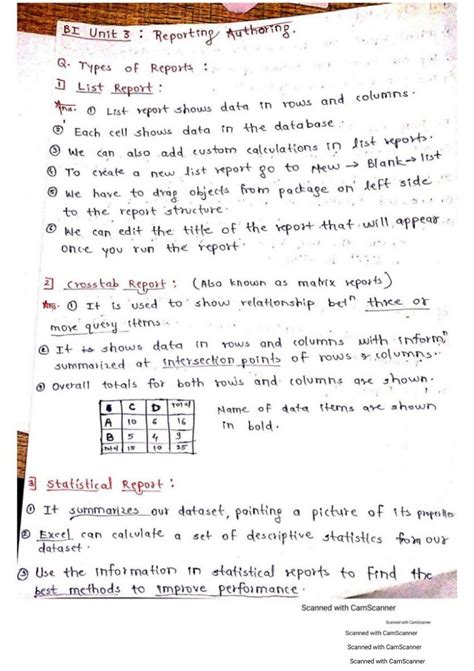 BI Unit 3 : Reporting Authoring.
Q. Types of Reports :
1] List Report :
Ans. ① List report shows data in rows and columns.
② Each cell shows data in the database.
③ We can also add custom calculations in list reports.
④ To create a new list report go to New → Blank → list
⑤ We have to drag objects from package on left side
to the report structure.
⑥ We can edit the title of the report that will appear
once you run the report.
2] Crosstab Report : (Also known as matrix reports)
Ans. ① It is used to show relationship betⁿ three or
more query items.
② It shows data in rows and columns with informⁿ
summarized at intersection points of rows & columns.
③ Overall totals for both rows and columns are shown.
C D Total
A 10 6 16
B 5 4 9
Total 15 10 25
Name of data items are shown
in bold.
3] Statistical Report :
① It summarizes our dataset, painting a picture of its properties
② Excel can calculate a set of descriptive statistics from our
dataset.
③ Use the information in statistical reports to find the
best methods to improve performance.
Scanned with CamScanner
Scanned with CamScanner
Scanned with CamScanner
Scanned with CamScanner
Scanned with CamScanner